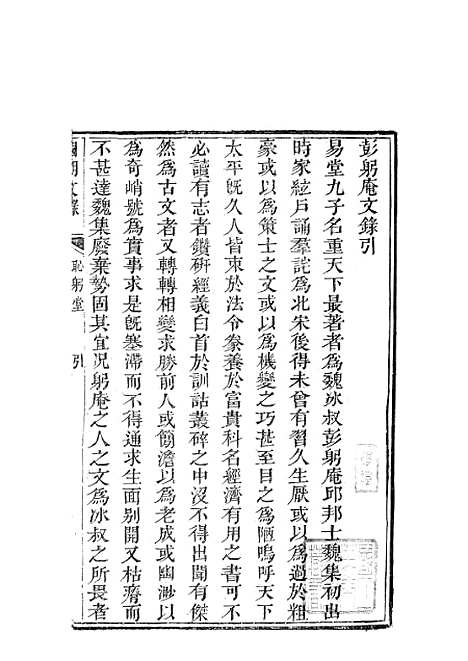 彭躬庵文錄引
易堂九子名重天下最著者爲魏冰叔彭躬庵邱邦士魏集初出
時家絃戶誦羣詫爲北宋後得未曾有習久生厭或以爲過於粗
豪或以爲策士之文或以爲機變之巧甚至目之爲陋嗚呼天下
太平旣久人皆束於法令豢養於富貴科名經濟有用之書可不
必讀有志者鑽硏經義白首於訓詁叢碎之中沒不得出閒有傑
然爲古文者又轉轉相變求勝前人或簡澹以爲老成或幽渺以
爲奇峭號爲實事求是旣塞滯而不得通求生面別開又枯瘠而
不甚達魏集廢棄勢固其宜况躬庵之人之文爲冰叔之所畏者
國朝文錄
恥躬堂 引